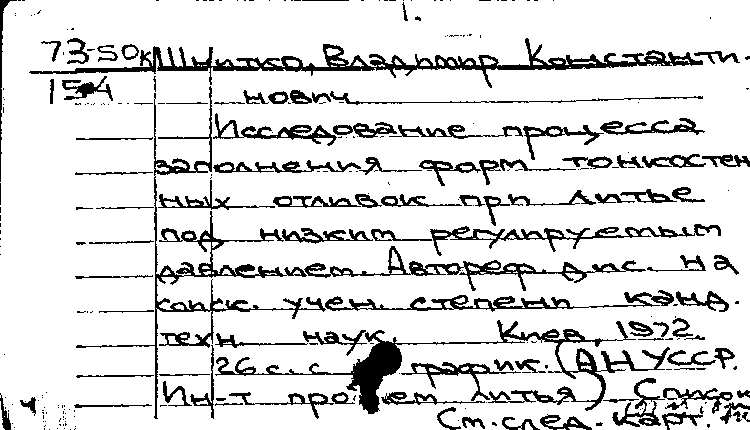 1.
73-50к Шнитко, Владимир Константи-
15-4 нович.
Исследование процесса
заполнения форм тонкостен
ных отливок при литье
под низким регулируемым
давлением. Автореф. дис. на
соиск. учен. степени канд.
техн. наук. Киев, 1972.
26 с. с график. (АН УССР.
Ин-т литья). Список
См. след. карт.